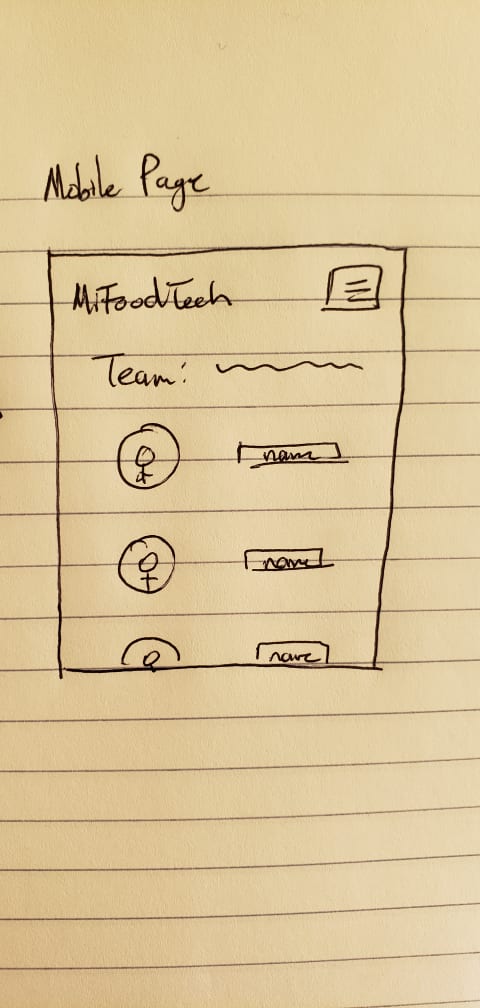 Mobile Page
MiFoodTech
Team:
name
name
name